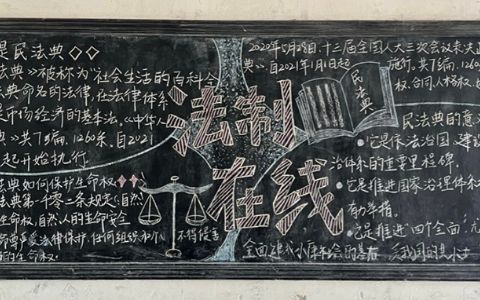 是民法典
法典》被称为"社会生活的百科全
法典命名的法律,在法律体系
是市场经济的基本法。《中华人
典》共7编、1260条,自2021
起开始执行
法典如何保护生命权
法典第一千零二条规定:自然
生命权,自然人的生命安全
受法律保护.任何组织和个
不得侵害
的生命权.
法制
在线
民法典
2020年5月28日,十三届全国人大三次会议表决通
典》自2021年1月1日起
施行.共7编、1260条
权、合同、人格权、
民法典的意义
·它是依法治国、建设
治体系的重要里程碑.
·它是推进国家治理体系
有力举措.
·它是推进"四个全面"
全面建成小康社会的